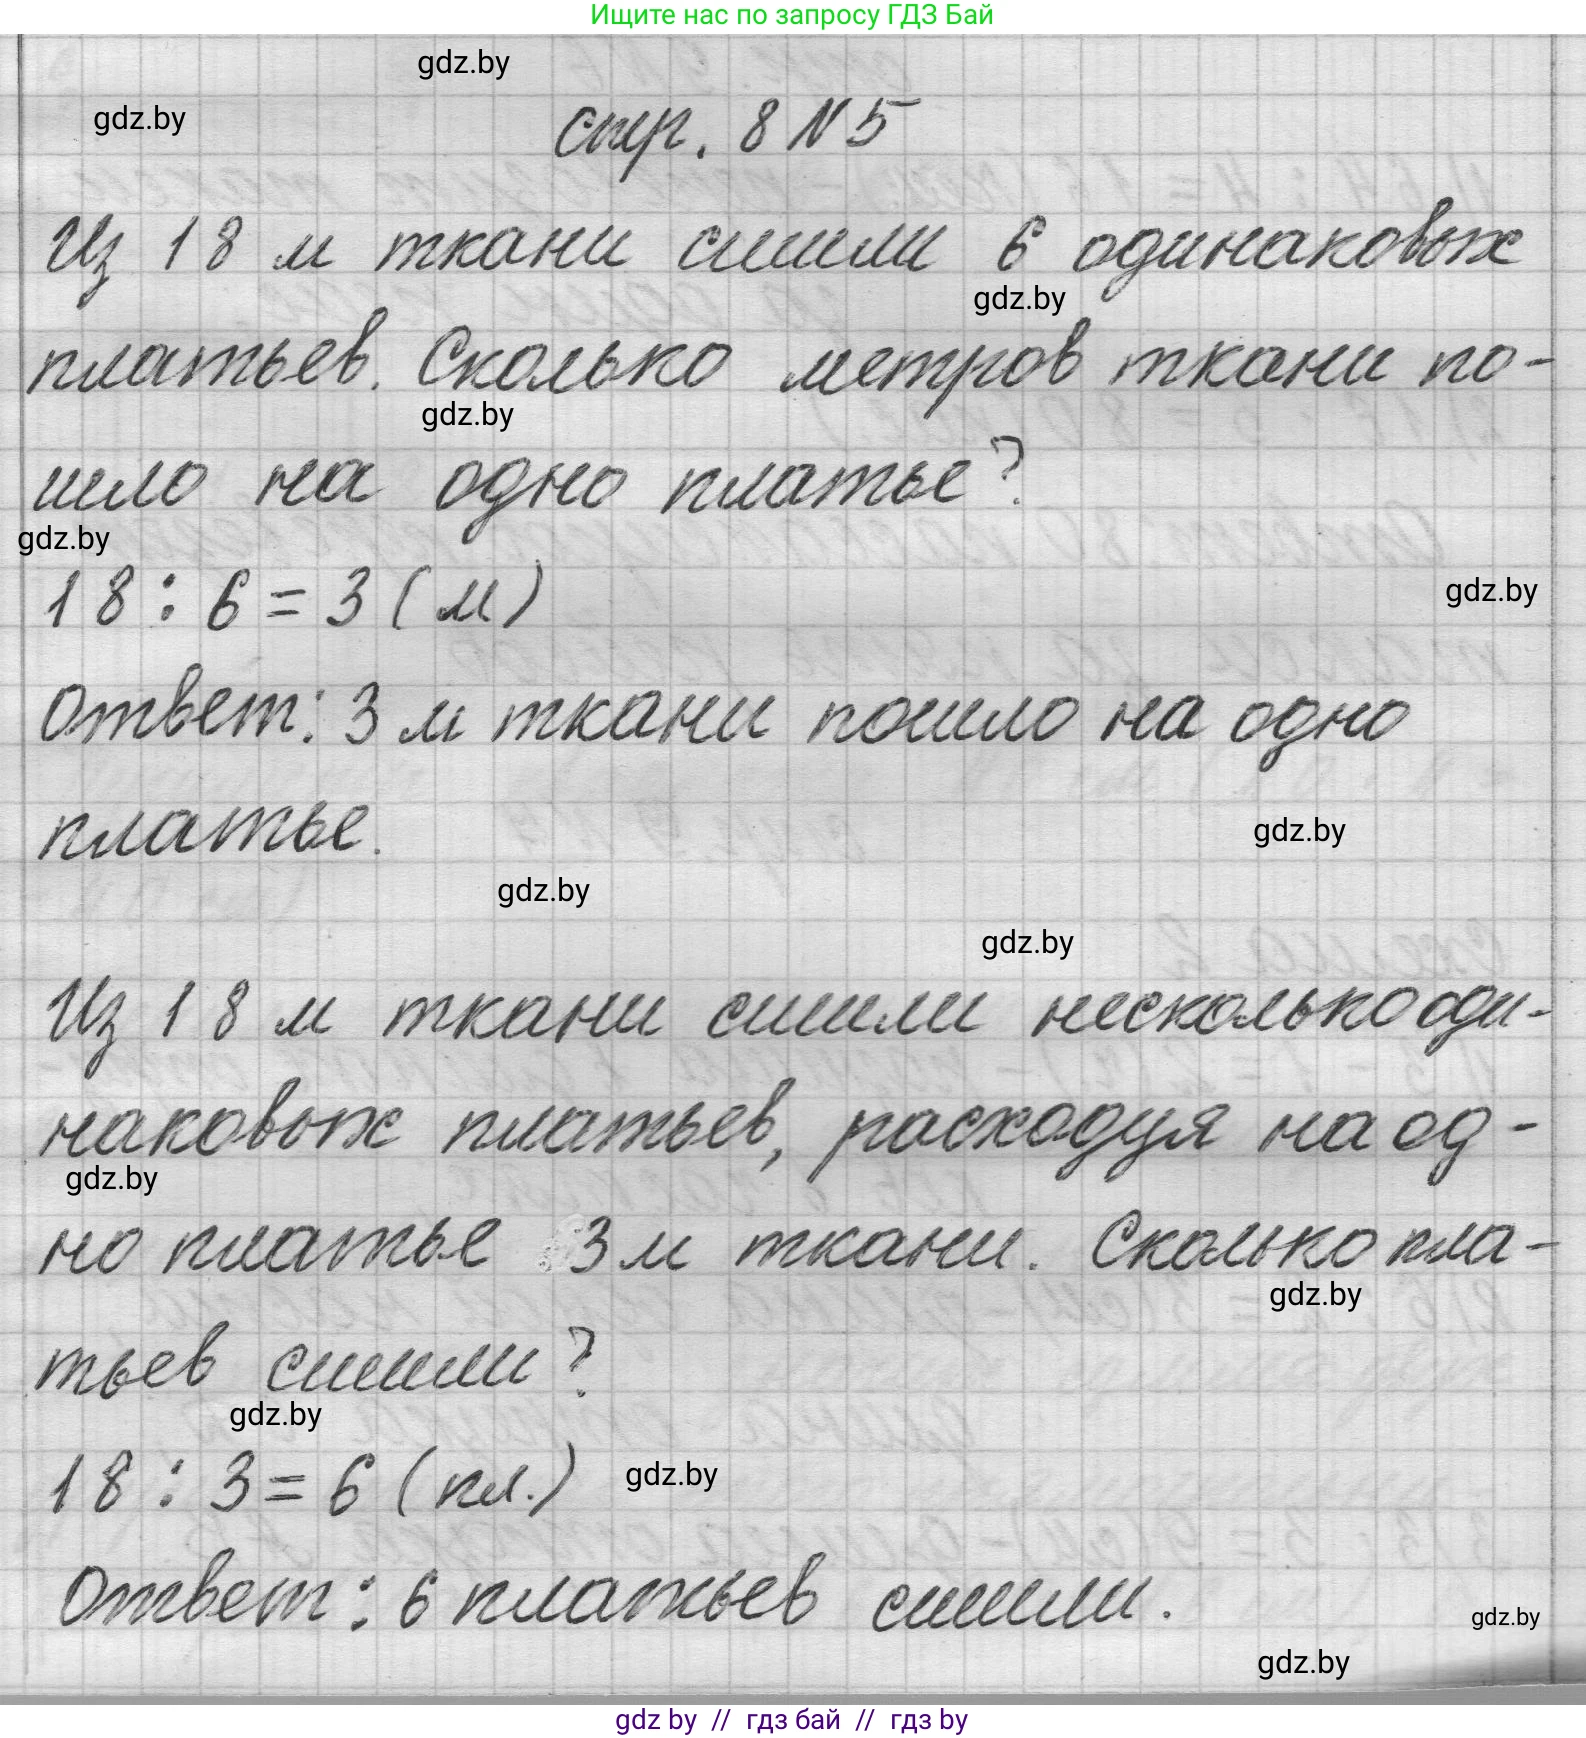 Ищите нас по запросу ГДЗ Бай
gdz.by
gdz.by
стр. 8 N 5
Из 18 м ткани сшили 6 одинаковых
gdz.by
платьев. Сколько метров ткани по-
gdz.by
шло на одно платье?
gdz.by
18 : 6 = 3 (м)
gdz.by
Ответ: 3 м ткани пошло на одно
платье.
gdz.by
gdz.by
gdz.by
Из 18 м ткани сшили несколько оди-
наковых платьев, расходуя на од-
gdz.by
но платье 3 м ткани. Сколько пла-
gdz.by
тьев сшили?
gdz.by
18 : 3 = 6 (пл.)
gdz.by
Ответ: 6 платьев сшили.
gdz.by
gdz.by
gdz by // гдз бай // гдз by